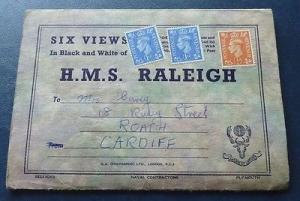 SIX VIEWS
In Black and White of
H.M.S. RALEIGH
To Mrs
18 Ruby Street
ROATH
CARDIFF
From
LONDON, E.C.4
NAVAL CONTRACTORS
PLYMOUTH